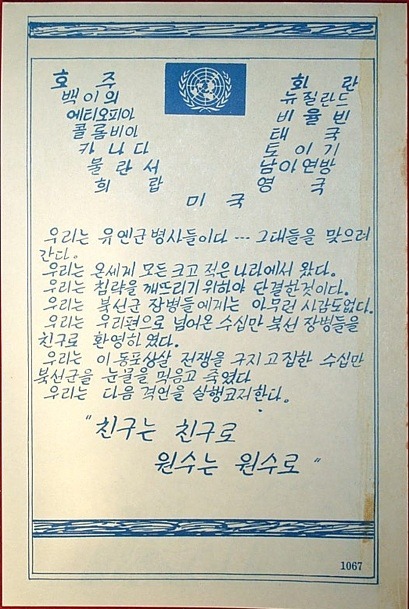 호 주 화 란
백이의 뉴질란드
에티오피아 비율빈
콜롬비아 태 국
카 나 다 토 이 기
불 란 서 남아연방
희 랍 영 국
미 국
우리는 유엔군 병사들이다 --- 그대들을 맞으러
간다.
우리는 온세계 모든 크고 적은 나라에서 왔다.
우리는 침략을 깨뜨리기 위하야 단결한것이다.
우리는 북선군 장병들에게는 아무런 사감도없다.
우리는 우리편으로 넘어온 수십만 북선 장병들을
친구로 환영하였다.
우리는 이 동포상살 전쟁을 구지고집한 수십만
북선군을 눈물을 먹음고 죽였다
우리는 다음 격언을 실행코저한다.
"친구는 친구로
원수는 원수로"
1067